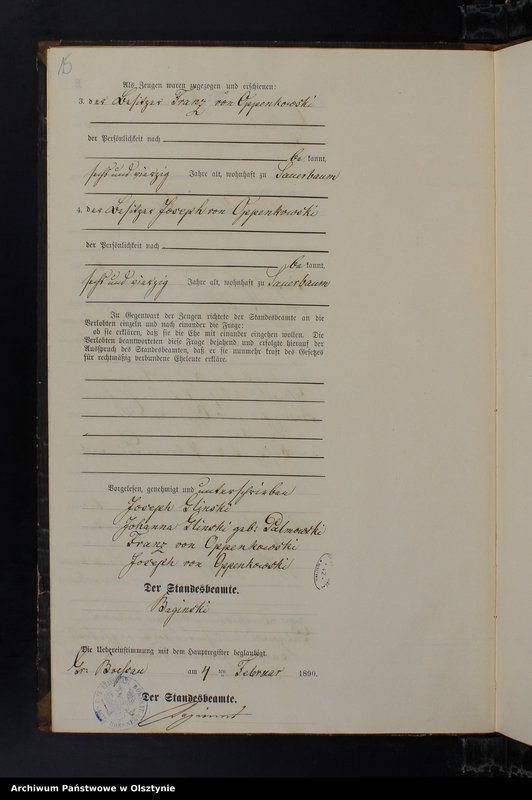 15
Als Zeugen waren zugezogen und erschienen:
3. der Besitzer Franz von Oppenkowski
der Persönlichkeit nach
be kannt,
sechs und vierzig Jahre alt, wohnhaft zu Sauerbaum
4. der Besitzer Joseph von Oppenkowski
der Persönlichkeit nach
be kannt,
sechs und vierzig Jahre alt, wohnhaft zu Sauerbaum
In Gegenwart der Zeugen richtete der Standesbeamte an die
Verlobten einzeln und nach einander die Frage:
ob sie erklären, daß sie die Ehe mit einander eingehen wollen. Die
Verlobten beantworteten diese Frage bejahend und erfolgte hierauf der
Ausspruch des Standesbeamten, daß er sie nunmehr kraft des Gesetzes
für rechtmäßig verbundene Eheleute erkläre.
Vorgelesen, genehmigt und unterschrieben
Joseph Glinski
Johanna Glinski geb: Palmowski
Franz von Oppenkowski
Joseph von Oppenkowski
Der Standesbeamte.
Baginski
Die Uebereinstimmung mit dem Hauptregister beglaubigt.
Gr. Boessau am 4 ten Februar 1890.
Der Standesbeamte.
Archiwum Państwowe w Olsztynie